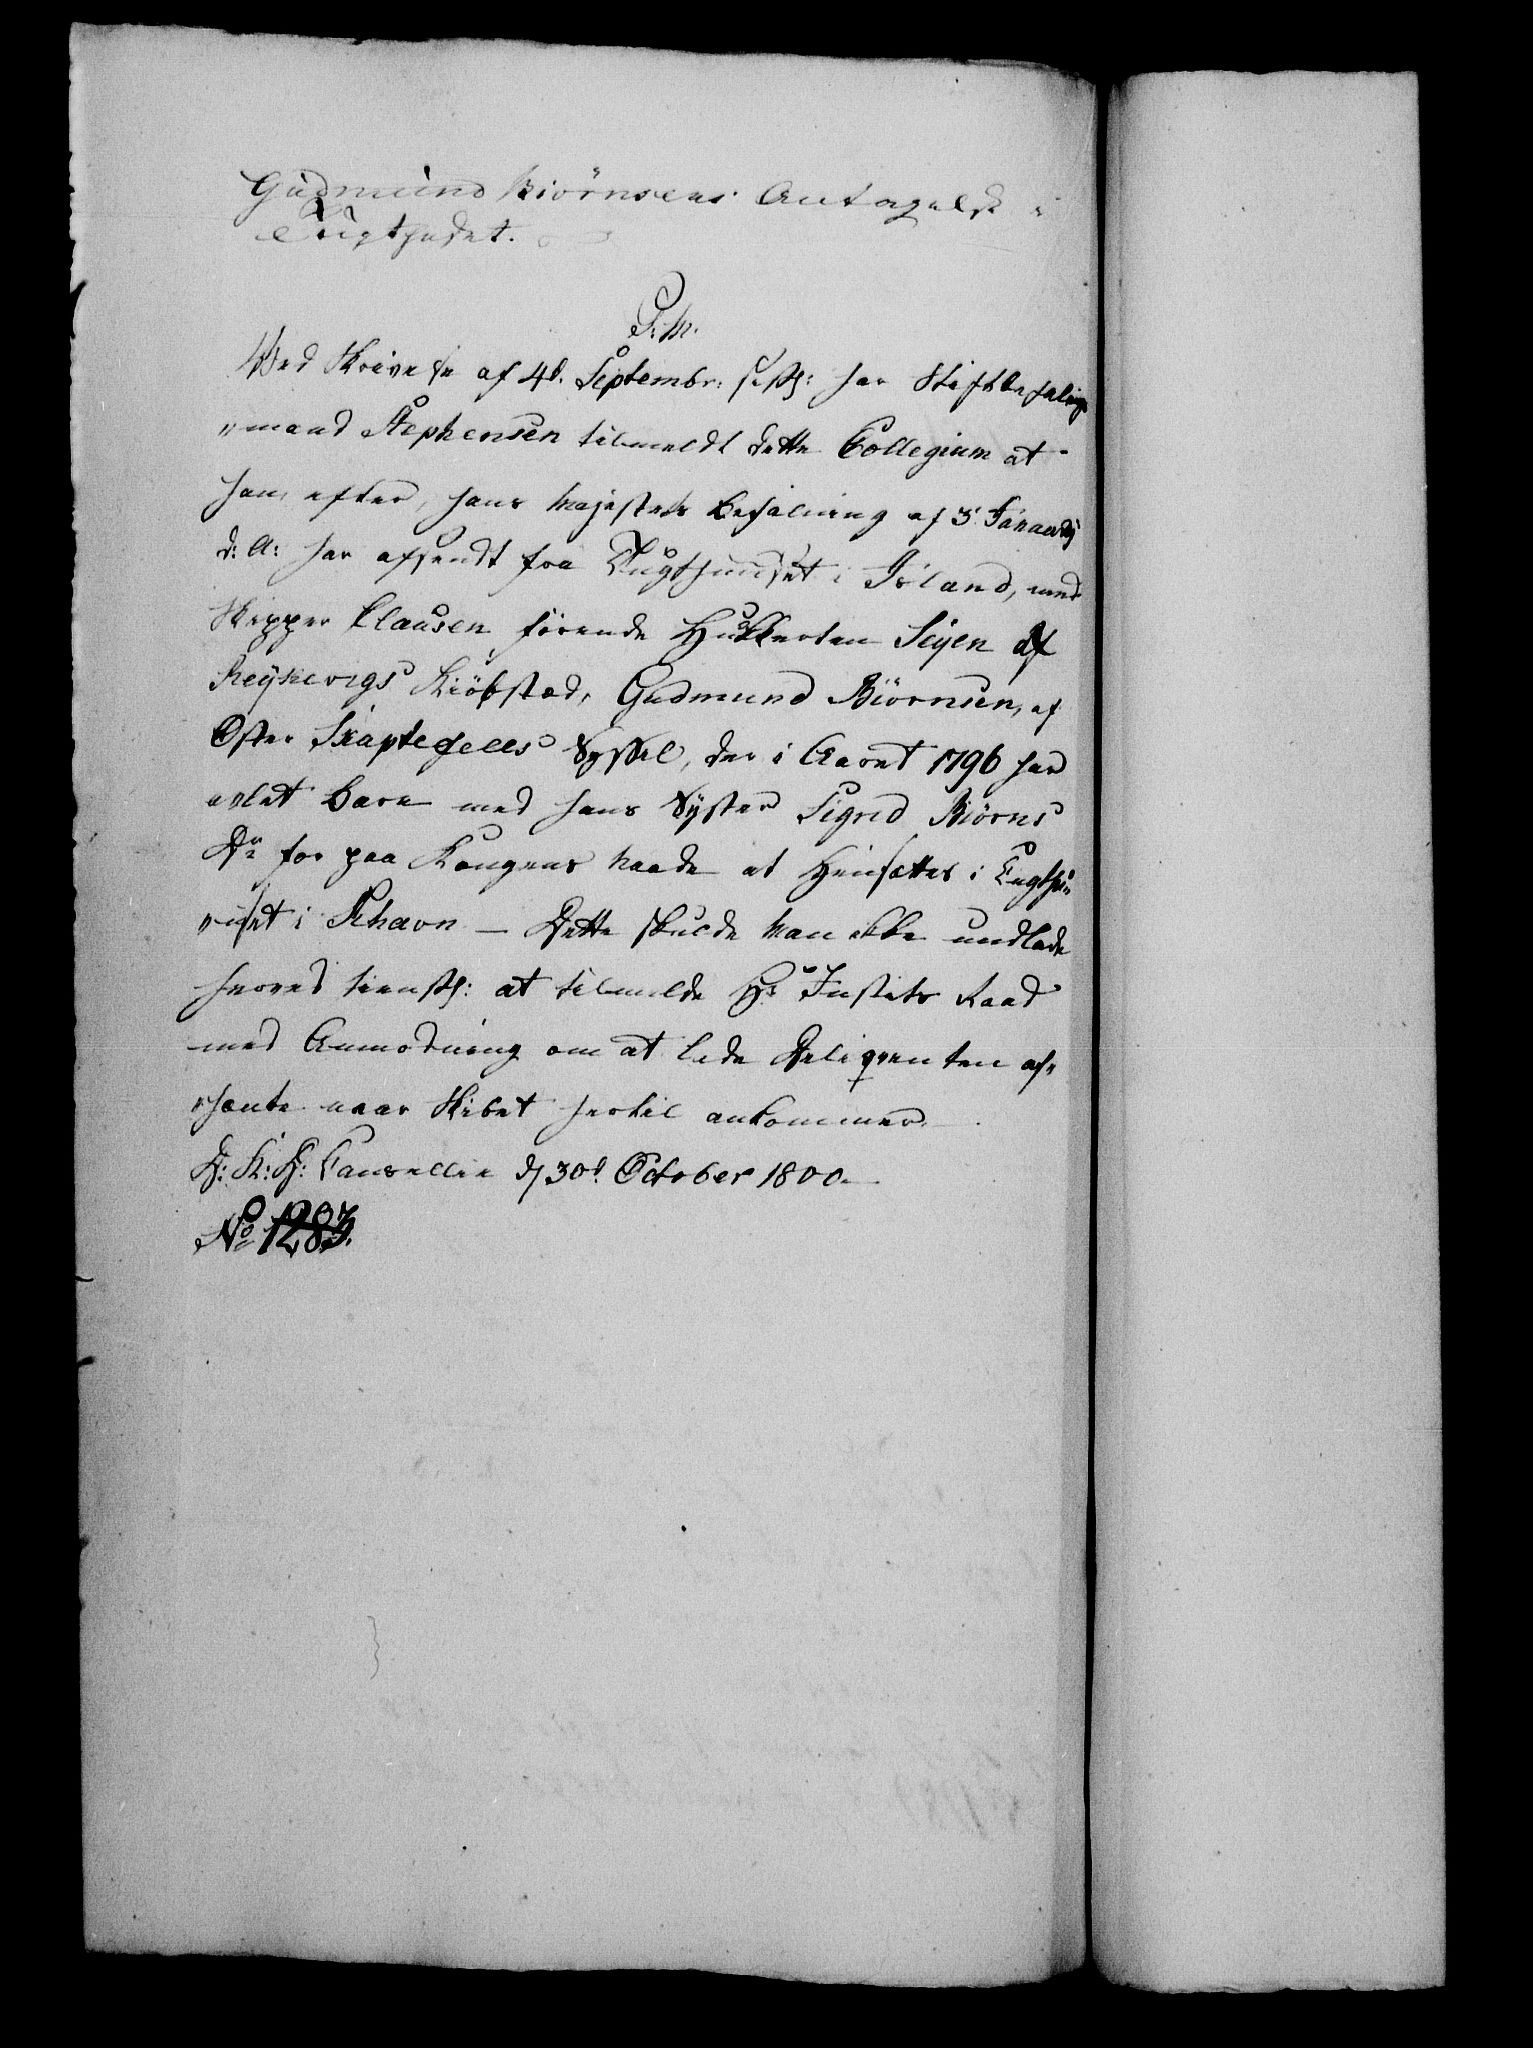 Gudmund Biörnsens Antagelse i
Tugthuset.
P. M.
Ved Skrivelse af 4d. Septembr: sidstl: har Stiftbefalings
„mand Stephensen tilmeldt dette Collegium at
han, efter, Hans Majestets Befalning af 3 Januarij
d: A: har afsendt fra Tugthuuset i Island, med
Skipper Clausen, förende Hukkerten Seyen af
Reykevigs Kiöbstæd, Gudmund Biörnsen, af
Öster Skaptefells Syssel, der i Aaret 1796 har
avlet Barn med hans Syster Sigrid Biörns
Dr for paa Kongens Naade at hensættes i Tugthu„
„uset i Khavn — Dette skulde man ikke undlade
herved tienstl: at tilmelde Hr Justits Raad
med Anmodning om at lade Deliqventen af„
„hente naar Skibet hertil ankommer. —
D: K: D: Cancellie d 30d October 1800.
No 1283.